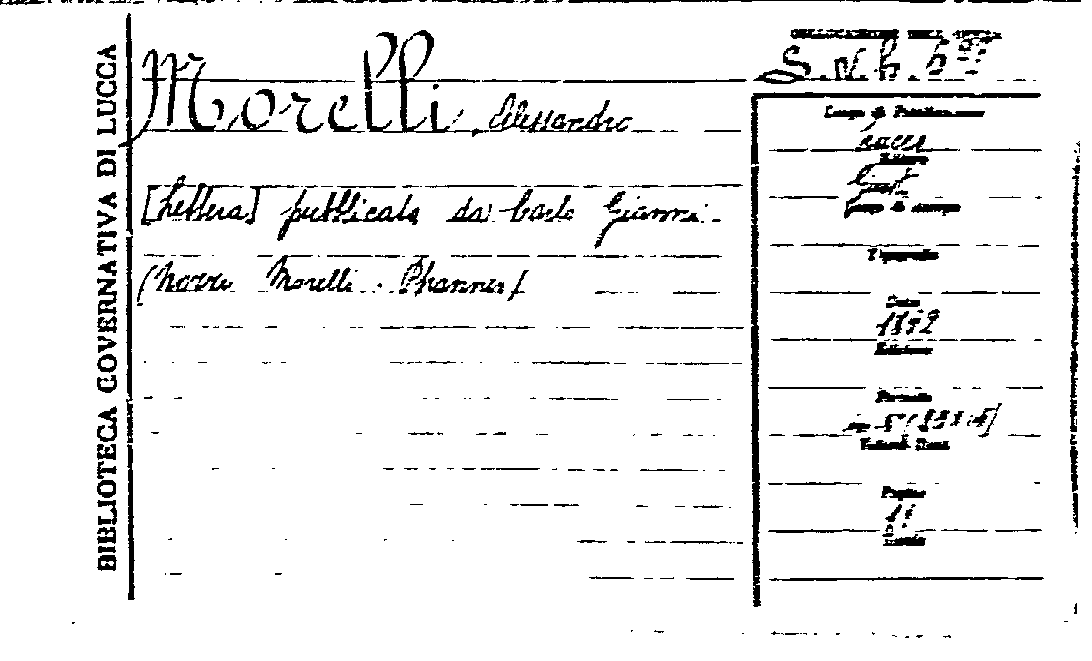 BIBLIOTECA GOVERNATIVA DI LUCCA
Morelli, Alessandro
[Lettera] pubblicata da Carlo Gianni.
(Nozze Morelli - Phanner)
COLLOCAZIONE DELL'OPERA
Luogo di Pubblicazione
Lucca
Editore
Giusti
Luogo di stampa
Tipografia
Data
1892
Edizione
Formato
Pagine